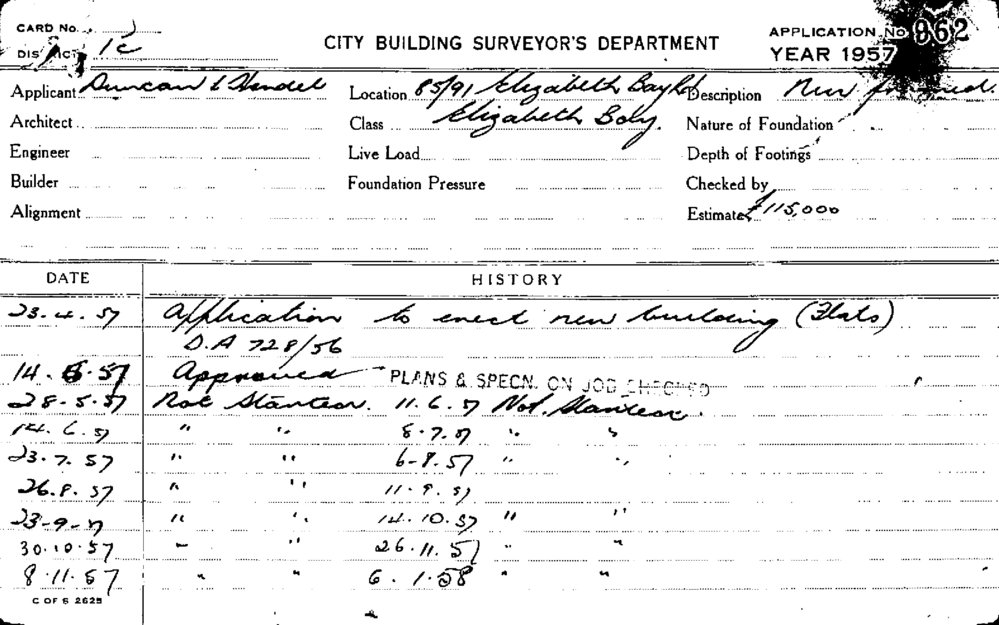 CARD No.
CITY BUILDING SURVEYOR'S DEPARTMENT
APPLICATION No 862
DISTRICT 1c
YEAR 1957
Applicant Duncan &
Location 85/91 Elizabeth Bay Rd
Description New
Architect
Class Elizabeth Bay.
Nature of Foundation
Engineer
Live Load
Depth of Footings
Builder
Foundation Pressure
Checked by
Alignment
Estimate £115,000
DATE HISTORY
23.4.57 Application to erect new building (Flats)
D.A 728/56
14.5.57 Approved PLANS & SPECN. ON JOB CHECKED
28.5.57 Not Started. 11.6.57 Not Started.
14.6.57 " " 8.7.57 " "
23.7.57 " " 6-8.57 " "
26.8.57 " " 11.9.57
23-9-57 " " 14.10.57 " "
30.10.57 " " 26.11.57 " "
8.11.57 " " 6.1.58 " "
C OF S 2625